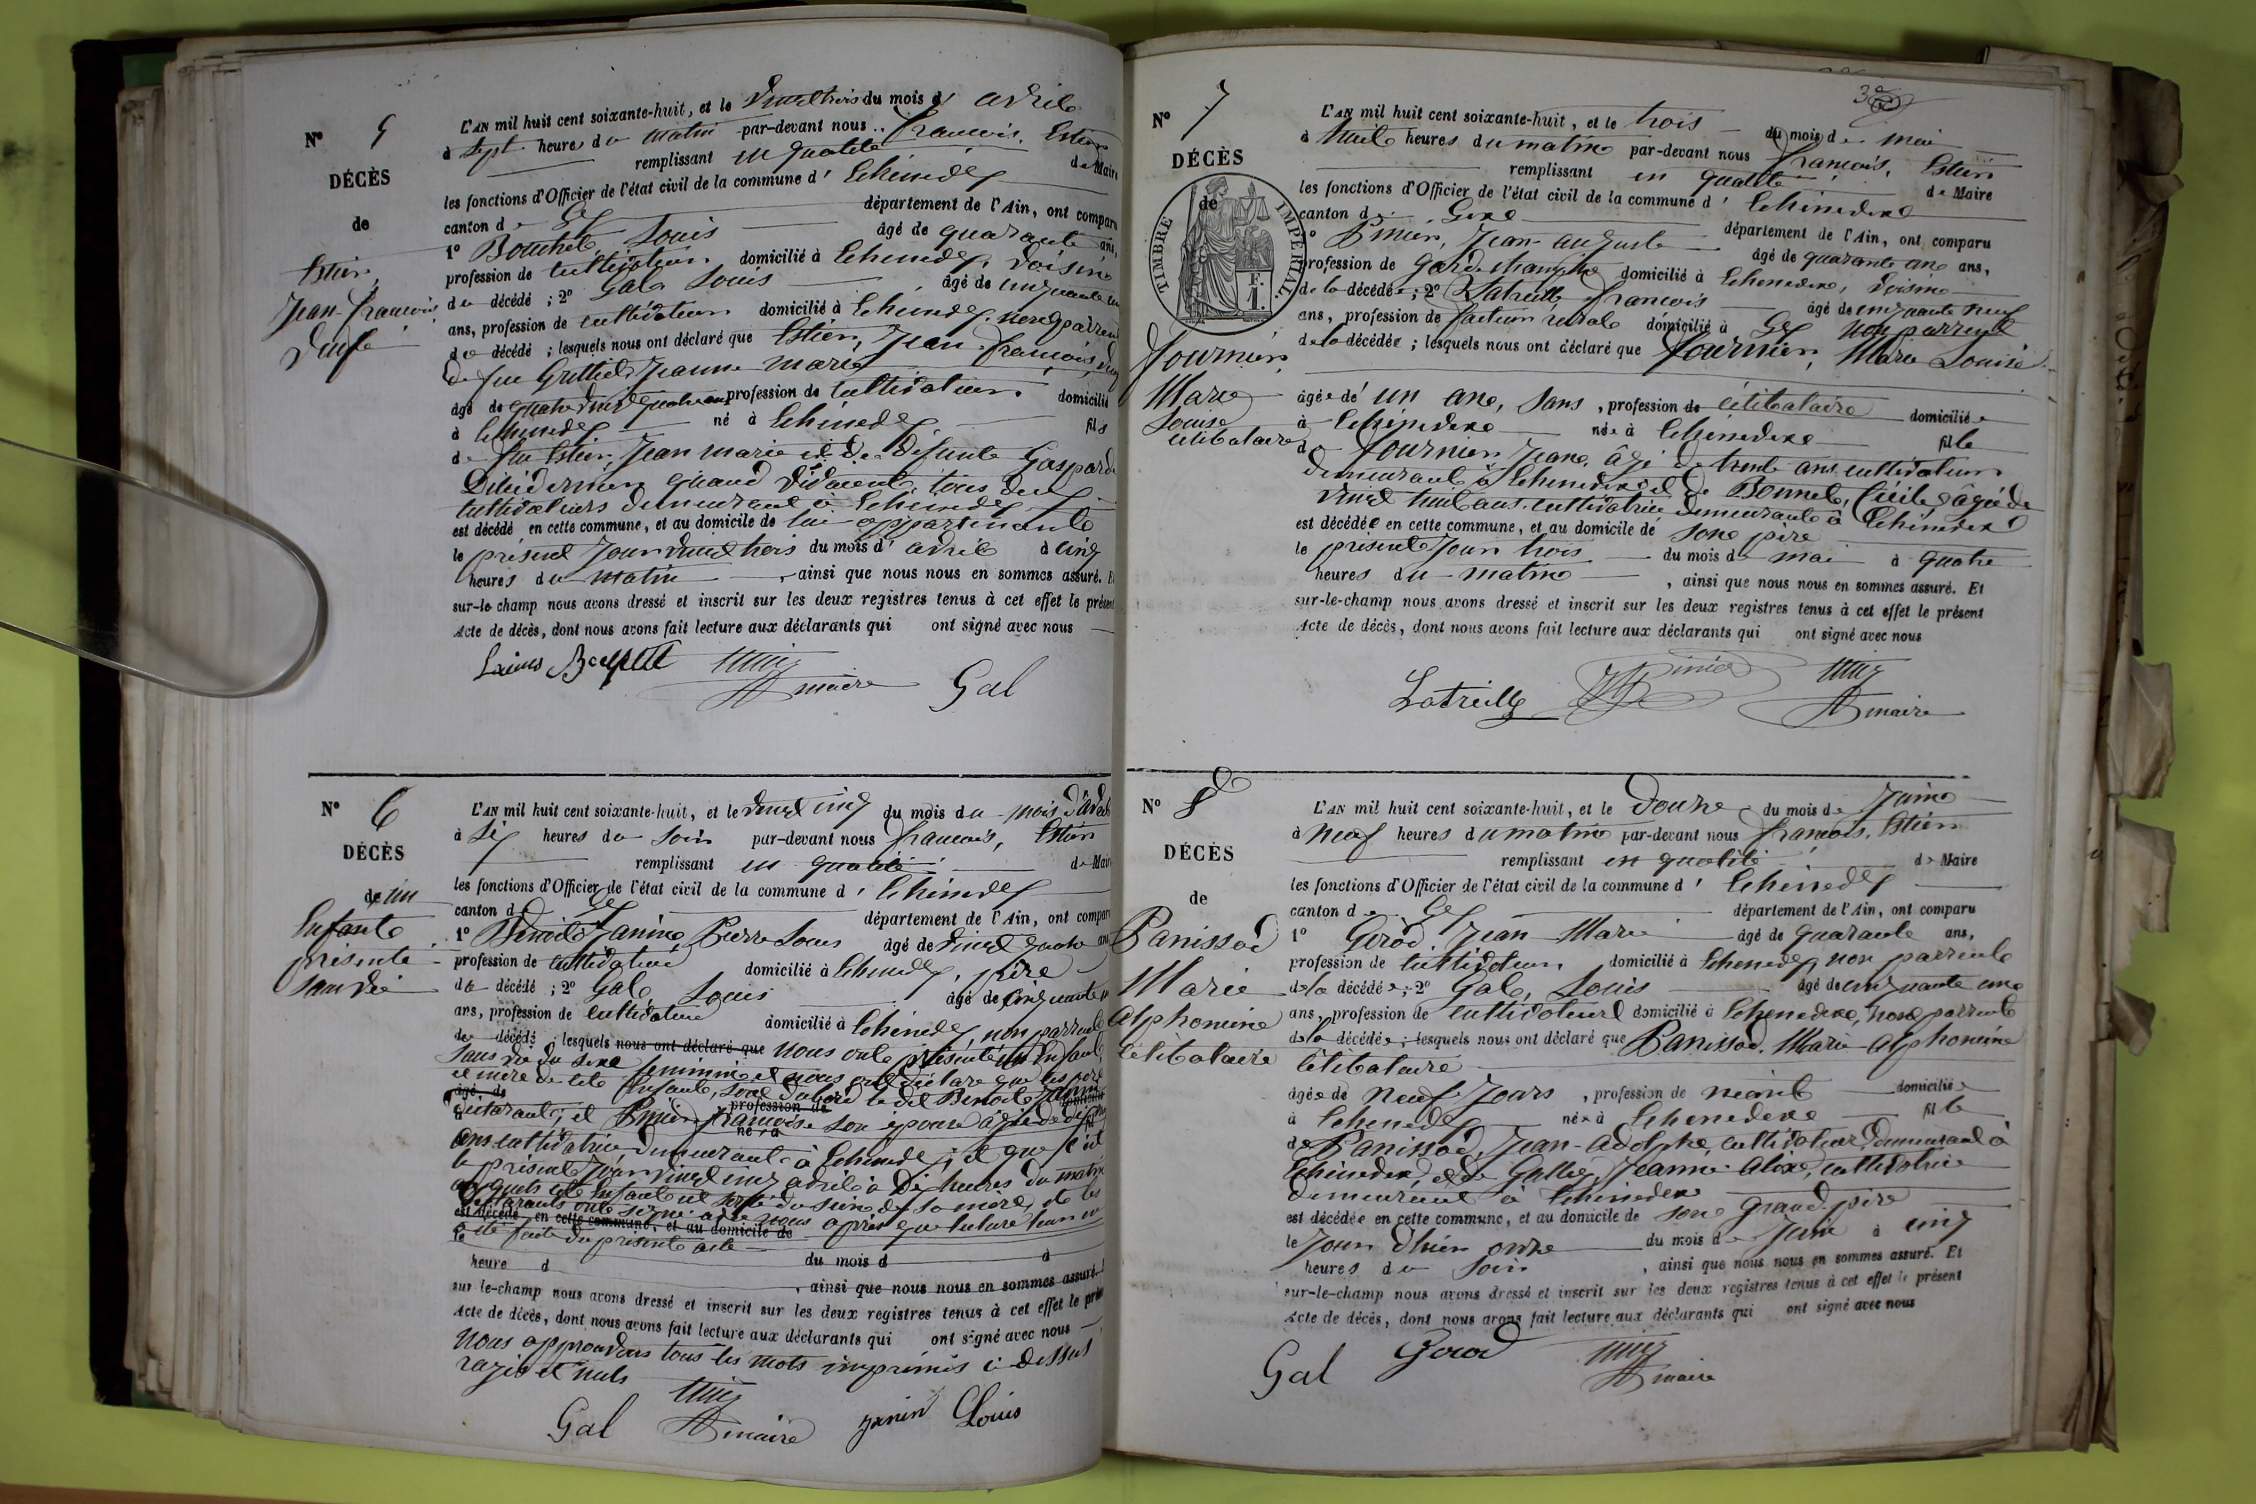 N° 5
DÉCÈS
de
Estier,
Jean-francois
veuf
L'AN mil huit cent soixante-huit, et le vingt trois du mois d' avril
à sept heures du matin par-devant nous francois, Estier
remplissant en qualité de Maire
les fonctions d'Officier de l'état civil de la commune d' Echenevex
canton de Gex département de l'Ain, ont comparu
1° Bouchet Louis âgé de quarante ans,
profession de cultivateur domicilié à Echenevex, voisin
du décédé ; 2° Gal Louis âgé de cinquante un
ans, profession de cultivateur domicilié à Echenevex, non parent
du décédé ; lesquels nous ont déclaré que Estier, Jean-francois, veuf
de feu Jeanne marie
âgé de quatre vingt quatre ans profession de cultivateur domicilié
à Echenevex né à Echenevex fils
de feu Estier, Jean marie et de défunte Gasparde
quand vivaient, tous deux
cultivateurs demeurant à Echenevex
est décédé en cette commune, et au domicile de lui appartenant
le présent jour vingt trois du mois d' avril à cinq
heures du matin, ainsi que nous nous en sommes assuré. Et
sur-le champ nous avons dressé et inscrit sur les deux registres tenus à cet effet le présent
Acte de décès, dont nous avons fait lecture aux déclarants qui ont signé avec nous
maire Gal
N° 6
DÉCÈS
de un
Enfant
présenté
sans vie
L'AN mil huit cent soixante-huit, et le vingt cinq du mois du mois d'avril
à six heures du soir par-devant nous francois, Estier
remplissant en qualité de Maire
les fonctions d'Officier de l'état civil de la commune d' Echenevex
canton de Gex département de l'Ain, ont comparu
1° Benoit Janin, Pierre Louis âgé de vingt quatre ans
profession de cultivateur domicilié à Echenevex, père
du décédé ; 2° Gal Louis âgé de cinquante un
ans, profession de cultivateur domicilié à Echenevex, non parent
du décédé ; lesquels nous ont déclaré que nous ont présenté un Enfant
sans vie du sexe féminin et nous ont déclaré que les père
et mère de cet Enfant, sont d'abord le dit Benoit Janin
âgé de profession de domicilié
déclarant, et françoise son épouse âgée de
né à
ans cultivatrice demeurant à Echenevex, et que c'est
le présent jour vingt cinq avril à dix heures du matin
cet Enfant est sorti du sein de sa mère, et les
déclarants ont signé avec nous après que lecture leur en
est décédé en cette commune, et au domicile de
a été faite du présent acte
heure d du mois d à
, ainsi que nous nous en sommes assuré. Et
sur le-champ nous avons dressé et inscrit sur les deux registres tenus à cet effet le présent
Acte de décès, dont nous avons fait lecture aux déclarants qui ont signé avec nous
nous approuvons tous les mots imprimés ci-dessus
rayés et nuls
Gal maire janin Louis
N° 7
DÉCÈS
de
TIMBRE IMPÉRIAL.
Fournier,
Marie
Louise
célibataire
L'AN mil huit cent soixante-huit, et le trois du mois de mai
à huit heures du matin par-devant nous francois, Estier
remplissant en qualité de Maire
les fonctions d'Officier de l'état civil de la commune d' Echenevex
canton de Gex département de l'Ain, ont comparu
1° Pinier, Jean-auguste âgé de quarante ans,
profession de garde champêtre domicilié à Echenevex, voisin
de la décédée ; 2° Latreille francois âgé de cinquante neuf
ans, profession de facteur rural domicilié à Gex non parent
de la décédée ; lesquels nous ont déclaré que Fournier, Marie Louise
âgée de un an, sans, profession de célibataire domiciliée
à Echenevex née à Echenevex fille
de Fournier Jean, âgé de trente ans cultivateur
demeurant à Echenevex et de Bonnet, Cécile âgée de
vingt huit ans cultivatrice demeurant à Echenevex
est décédée en cette commune, et au domicile de son père
le présent jour trois du mois de mai à quatre
heures du matin, ainsi que nous nous en sommes assuré. Et
sur-le-champ nous avons dressé et inscrit sur les deux registres tenus à cet effet le présent
Acte de décès, dont nous avons fait lecture aux déclarants qui ont signé avec nous
Latreille Pinier maire
N° 8
DÉCÈS
de
Panissod
Marie
alphonsine
célibataire
L'AN mil huit cent soixante-huit, et le douze du mois de Juin
à neuf heures du matin par-devant nous francois, Estier
remplissant en qualité de Maire
les fonctions d'Officier de l'état civil de la commune d' Echenevex
canton de Gex département de l'Ain, ont comparu
1° Gerod, Jean Marie âgé de quarante ans,
profession de cultivateur, domicilié à Echenevex, non parent
de la décédée ; 2° Gal, Louis âgé de cinquante un
ans, profession de cultivateur domicilié à Echenevex, non parent
de la décédée ; lesquels nous ont déclaré que Panissod, Marie alphonsine
célibataire
âgée de neuf jours, profession de néant domiciliée
à Echenevex née à Echenevex fille
de Panissod, Jean-adolphe, cultivateur demeurant à
Echenevex, et de Gallay, Jeanne alix, cultivatrice
demeurant à Echenevex
est décédée en cette commune, et au domicile de son grand-père
le jour d'hier onze du mois de Juin à cinq
heures du soir, ainsi que nous nous en sommes assuré. Et
sur-le-champ nous avons dressé et inscrit sur les deux registres tenus à cet effet le présent
Acte de décès, dont nous avons fait lecture aux déclarants qui ont signé avec nous
Gal Gerod maire